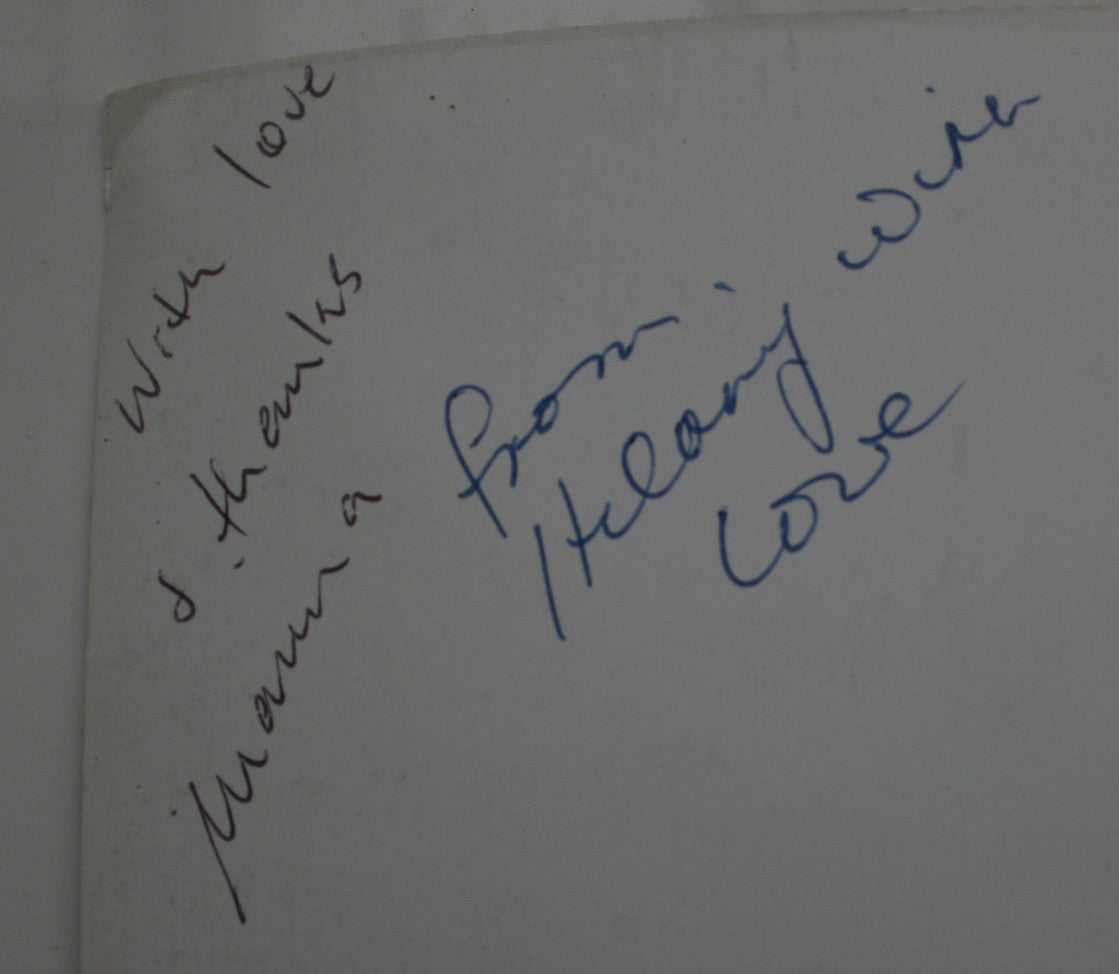 With love
& thanks
Marina
from
Hilary with
Love